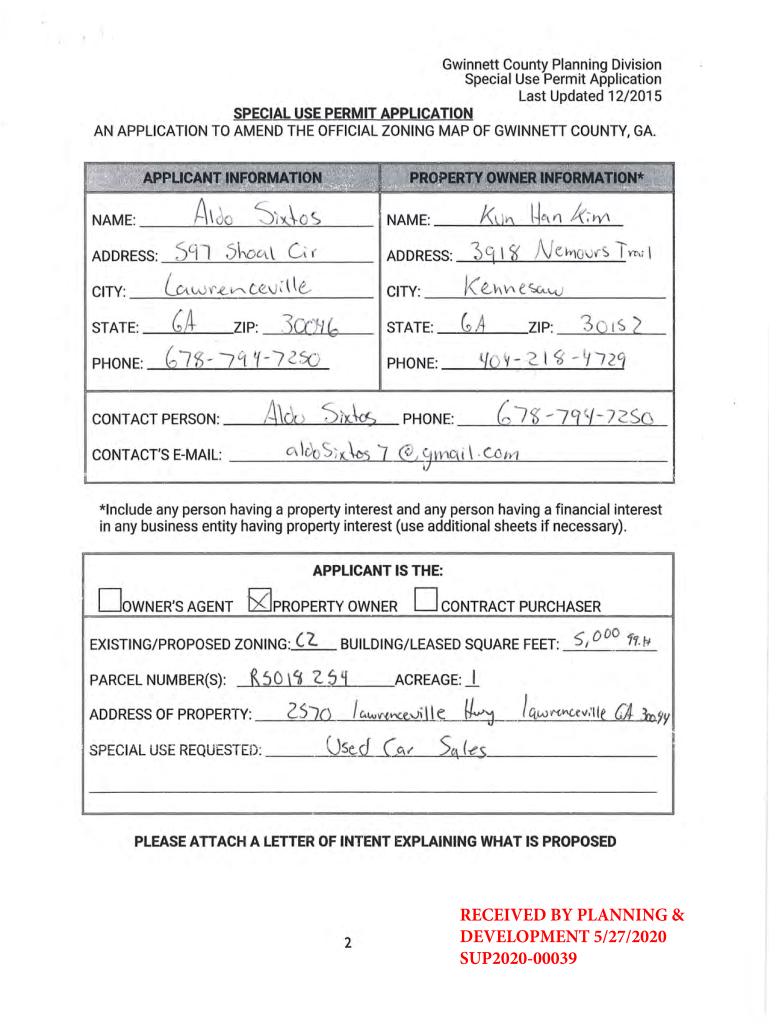 Gwinnett County Planning Division
Special Use Permit Application
Last Updated 12/2015
SPECIAL USE PERMIT APPLICATION
AN APPLICATION TO AMEND THE OFFICIAL ZONING MAP OF GWINNETT COUNTY, GA.
APPLICANT INFORMATION PROPERTY OWNER INFORMATION*
NAME: Aldo Sixtos NAME: Kun Han Kim
ADDRESS: 597 Shoal Cir ADDRESS: 3918 Nemours Trail
CITY: Lawrenceville CITY: Kennesaw
STATE: GA ZIP: 30046 STATE: GA ZIP: 30152
PHONE: 678-794-7250 PHONE: 404-218-4729
CONTACT PERSON: Aldo Sixtos PHONE: 678-794-7250
CONTACT'S E-MAIL: aldoSixtos7@gmail.com
*Include any person having a property interest and any person having a financial interest
in any business entity having property interest (use additional sheets if necessary).
APPLICANT IS THE:
OWNER'S AGENT PROPERTY OWNER CONTRACT PURCHASER
EXISTING/PROPOSED ZONING: C2 BUILDING/LEASED SQUARE FEET: 5,000
PARCEL NUMBER(S): R5018 254 ACREAGE: 1
ADDRESS OF PROPERTY: 2570 lawrenceville Hwy lawrenceville GA 30044
SPECIAL USE REQUESTED: Used Car Sales
PLEASE ATTACH A LETTER OF INTENT EXPLAINING WHAT IS PROPOSED
RECEIVED BY PLANNING &
DEVELOPMENT 5/27/2020
SUP2020-00039
2